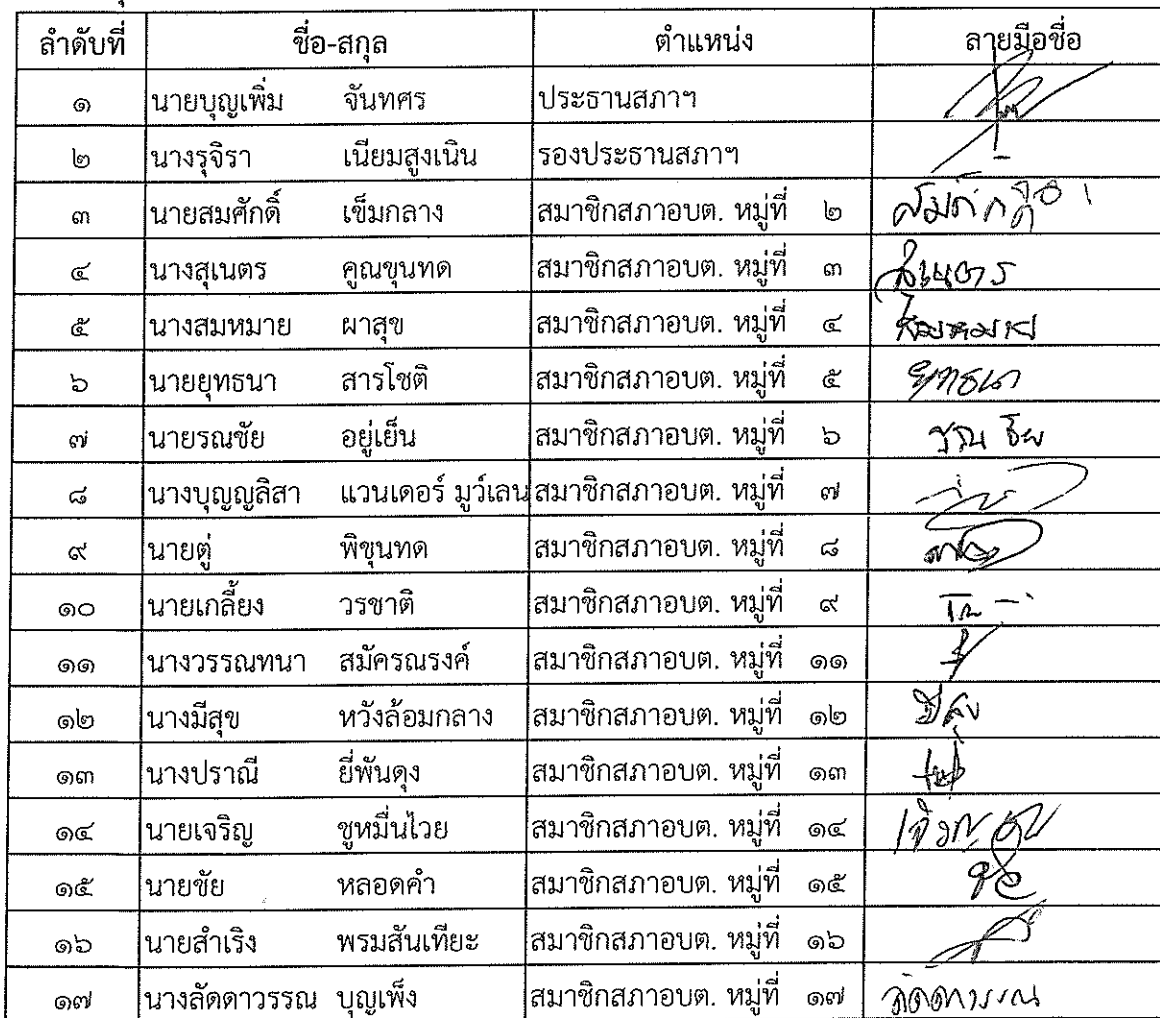 ลำดับที่ ชื่อ-สกุล ตำแหน่ง ลายมือชื่อ
๑ นายบุญเพิ่ม จันทศร ประธานสภาฯ
๒ นางรุจิรา เนียมสูงเนิน รองประธานสภาฯ -
๓ นายสมศักดิ์ เข็มกลาง สมาชิกสภาอบต. หมู่ที่ ๒ สมศักดิ์
๔ นางสุเนตร คูณขุนทด สมาชิกสภาอบต. หมู่ที่ ๓ สุเนตร
๕ นางสมหมาย ผาสุข สมาชิกสภาอบต. หมู่ที่ ๔ สมหมาย
๖ นายยุทธนา สารโชติ สมาชิกสภาอบต. หมู่ที่ ๕ ยุทธนา
๗ นายรณชัย อยู่เย็น สมาชิกสภาอบต. หมู่ที่ ๖
๘ นางบุญญลิสา แวนเดอร์ มูว์เลน สมาชิกสภาอบต. หมู่ที่ ๗
๙ นายตู่ พิขุนทด สมาชิกสภาอบต. หมู่ที่ ๘
๑๐ นายเกลี้ยง วรชาติ สมาชิกสภาอบต. หมู่ที่ ๙
๑๑ นางวรรณทนา สมัครณรงค์ สมาชิกสภาอบต. หมู่ที่ ๑๑
๑๒ นางมีสุข หวังล้อมกลาง สมาชิกสภาอบต. หมู่ที่ ๑๒ มีสุข
๑๓ นางปราณี ยี่พันดุง สมาชิกสภาอบต. หมู่ที่ ๑๓
๑๔ นายเจริญ ชูหมื่นไวย สมาชิกสภาอบต. หมู่ที่ ๑๔
๑๕ นายชัย หลอดคำ สมาชิกสภาอบต. หมู่ที่ ๑๕
๑๖ นายสำเริง พรมสันเทียะ สมาชิกสภาอบต. หมู่ที่ ๑๖
๑๗ นางลัดดาวรรณ บุญเพ็ง สมาชิกสภาอบต. หมู่ที่ ๑๗ ลัดดาวรรณ